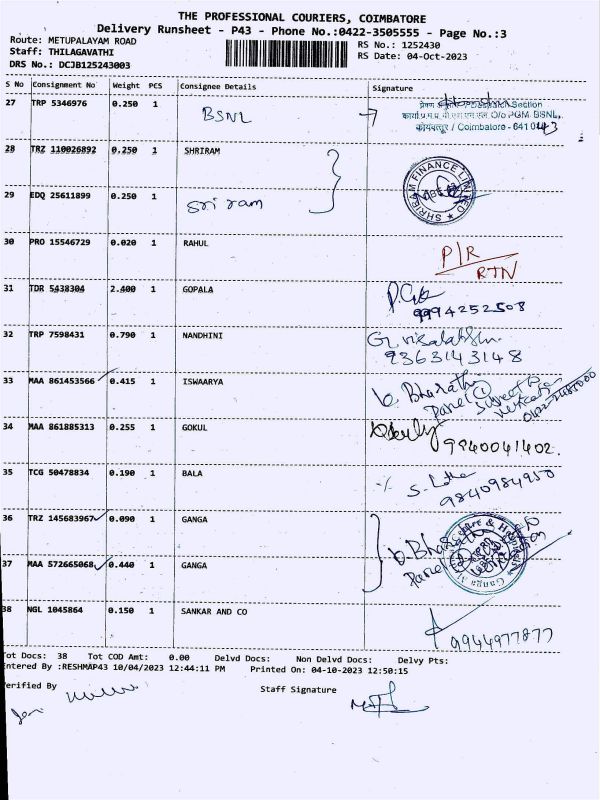 THE PROFESSIONAL COURIERS, COIMBATORE
Delivery Runsheet - P43 - Phone No.:0422-3505555 - Page No.:3
Route: METUPALAYAM ROAD
RS No.: 1252430
Staff: THILAGAVATHI
RS Date: 04-Oct-2023
DRS No.: DCJB125243003
S No Consignment No Weight PCS Consignee Details Signature
27 TRP 5346976 0.250 1 BSNL
Despatch Section
O/o PGM BSNL,
कोयंबत्तूर / Coimbatore - 641 043
28 TRZ 110026892 0.250 1 SHRIRAM
SHRIRAM FINANCE LIMITED
29 EDQ 25611899 0.250 1 Sri ram
30 PRO 15546729 0.020 1 RAHUL P/R
RTN
31 TDR 5438304 2.400 1 GOPALA
9994252508
32 TRP 7598431 0.790 1 NANDHINI
9363143148
33 MAA 861453566 0.415 1 ISWAARYA Bharathi
34 MAA 861885313 0.255 1 GOKUL 9840041402.
35 TCG 50478834 0.190 1 BALA S. Latha
9840984950
36 TRZ 145683967 0.090 1 GANGA
37 MAA 572665068 0.440 1 GANGA
38 NGL 1045864 0.150 1 SANKAR AND CO 9944977877
Tot Docs: 38 Tot COD Amt: 0.00 Delvd Docs: Non Delvd Docs: Delvy Pts:
Entered By :RESHMAP43 10/04/2023 12:44:11 PM Printed On: 04-10-2023 12:50:15
Verified By Staff Signature